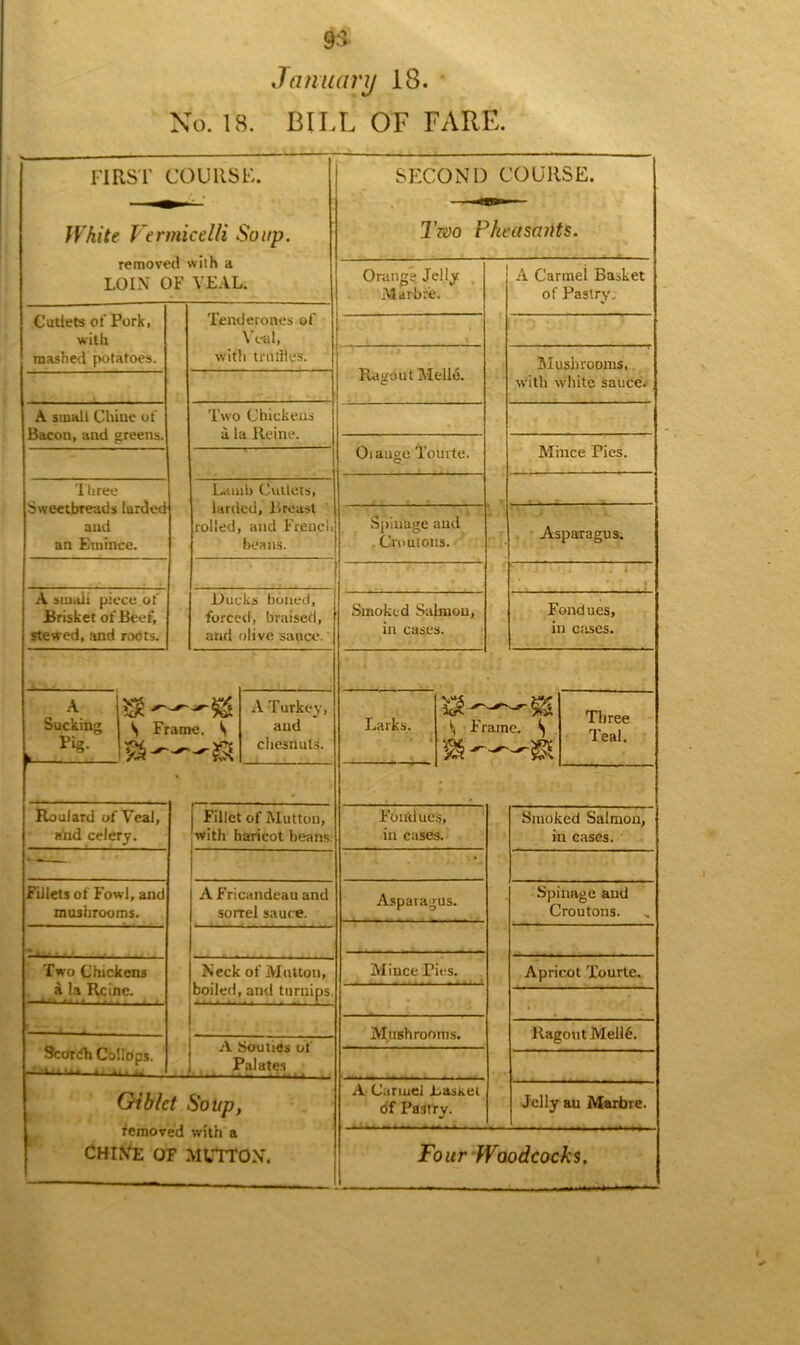 93
January 18.
No. 18. BILL OF FARE.
FIRST COURSE.
White Vermicelli Soup.
removed with a
LOIN OF VEAL.
Cutlets of Pork,
with
mashed potatoes.
Tenderones of
Veal,
with truffles.
A small Chine of
Bacon, and greens.
Two Chickens
à la Reine.
Three
Sweetbreads larded
and
an Emince.
Lamb Cutlets,
larded, Breast
rolled, and French
beans.
A small piece of
Brisket of Beef,
stewed, and roots.
Ducks boned,
forced, braised,
and olive sauce.
A
Sucking
Pig.
Frame.
A Turkey,
and
chesnuts.
Roulard of Veal,
and celery.
Fillet of Mutton,
with haricot beans.
Fillets of Fowl, and
mushrooms.
A Fricandeau and
sorrel sauce.
Two Chickens
à la Reine.
Neck of Mutton,
boiled, and turnips.
Scotch Collops.
A Souties of
Palates
Giblet Soup,
removed with a
CHINE OF MUTTON.
SECOND COURSE.
Two Pheasants.
Orange Jelly
Marbre.
A Carmel Basket
of Pastry.
Ragout Mellé.
Mushrooms,
with white sauce.
Orange Tourte.
Mince Pies.
Spinage and
Croutons.
Asparagus.
Smoked Salmon,
in cases.
Fondues,
in cases.
Larks.
Frame.
Three
Teal.
Fondues,
in cases.
Smoked Salmon,
in cases.
Asparagus.
Spinage and
Croutons.
Mince Pies.
Apricot Tourte.
Mushrooms.
Ragout Mellé.
A Carmel Basket
of Pastry.
Jelly au Marbre.
Four Woodcocks.